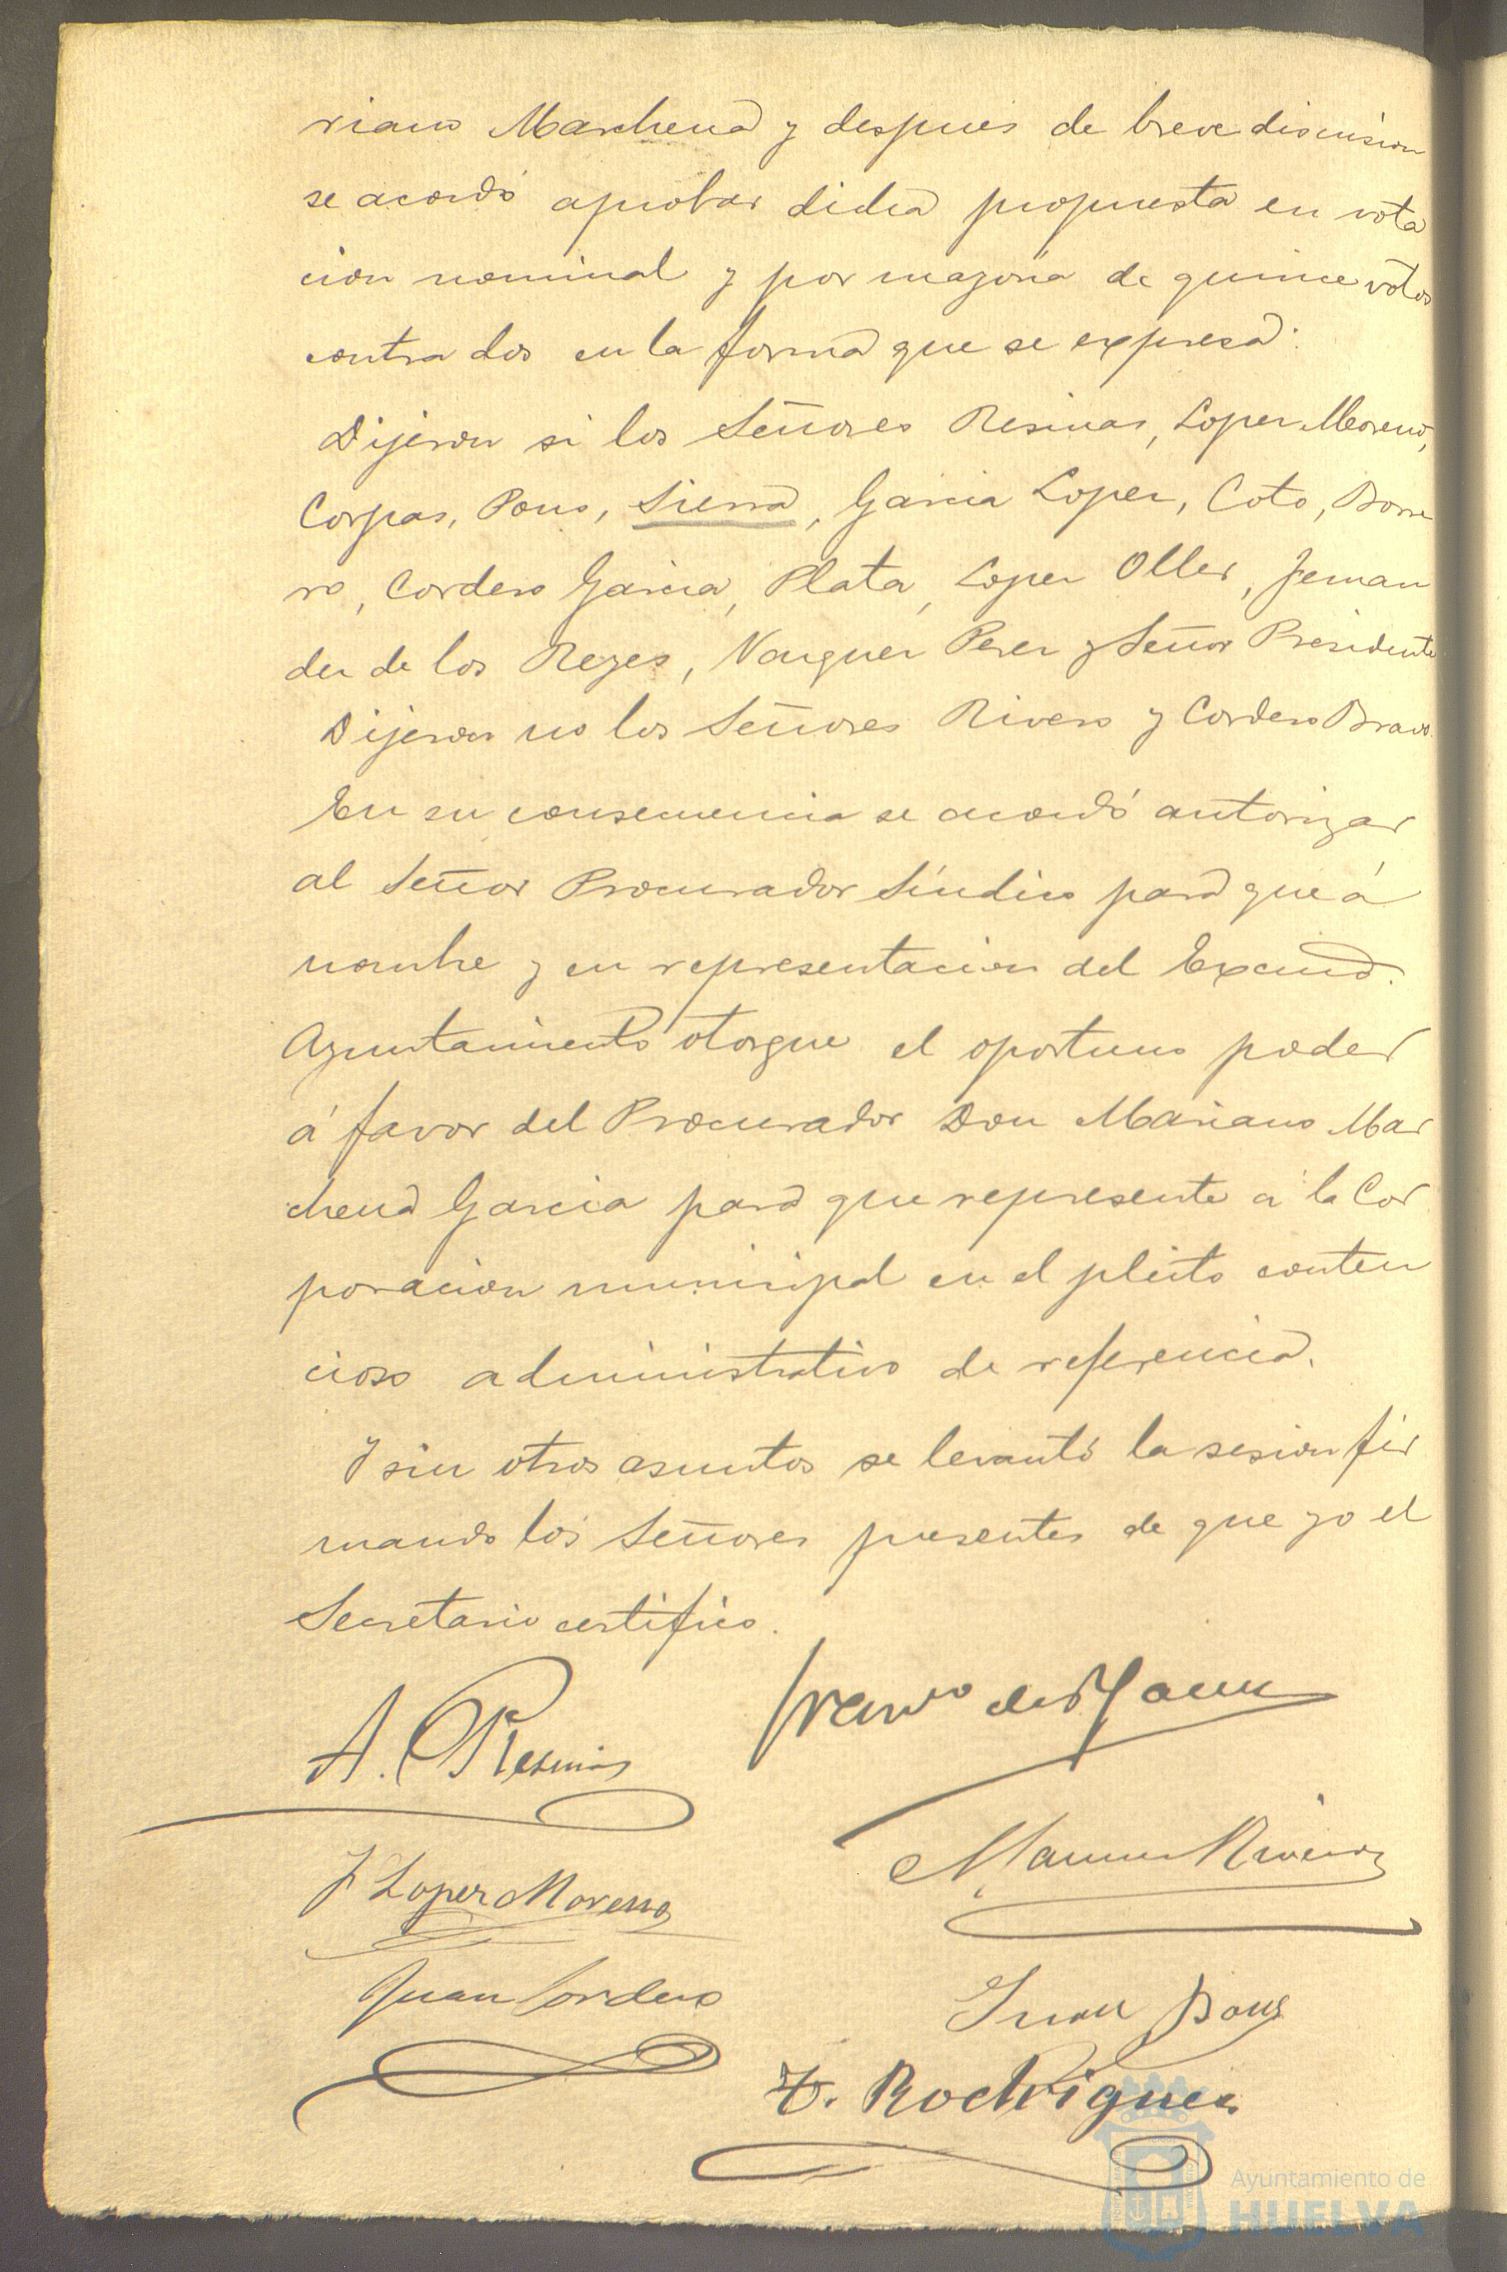 riano Marchena y despues de breve discusion
se acordó aprobar dicha propuesta en vota
cion nominal y por mayoria de quince votos
contra dos en la forma que se expresa:
Dijeron si los Señores Resinas, Lopez Moreno,
Corpas, Pons, Sierra, Garcia Lopez, Coto, Borre
ro, Cordero Garcia, Plata, Lopez Oller, Fernan
dez de los Reyes, Vazquez Perez y Señor Presidente
Dijeron no los Señores Rivero y Cordero Bravo.
En su consecuencia se acordó autorizar
al Señor Procurador Síndico para que á
nombre y en representacion del Excmo.
Ayuntamiento otorgue el oportuno poder
á favor del Procurador Don Mariano Mar
chena Garcia para que represente á la Cor
poracion municipal en el pleito conten
cioso administrativo de referencia.
Y sin otros asuntos se levantó la sesion fir
mando los Señores presentes de que yo el
Secretario certifico.
A. Resinas
J Lopez Moreno
Manuel Rivero
Juan Cordero
Juan Pons
F. Rodriguez
Ayuntamiento de
HUELVA